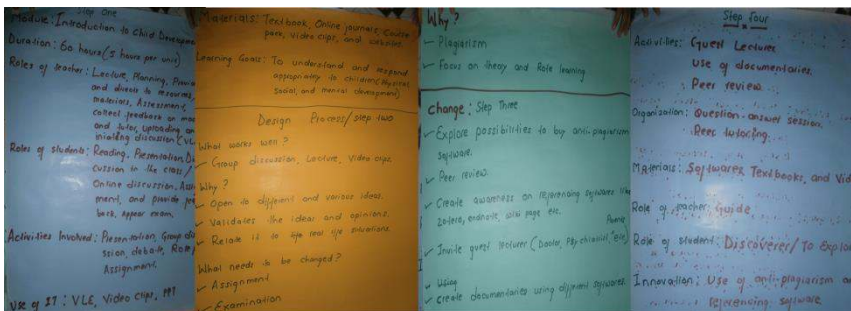 Step One
Module: Introduction to Child Developme
Duration: 60 hours (5 hours per unit)
Roles of teacher: Lecture, Planning, Provid
and direct to resources,
materials, Assessment,
collect feedback on mod
and tutor, uploading an
initiating discussion (VL
Roles of students: Reading, Presentation, Dis
cussion in the class/
Online discussion, Assi
ment, and provide fee
back, appear exam.
Activities Involved: Presentation, Group dis
ssion, debate, Role
Assignment.
Use of IT: VLE, Video Clips, PPT
Materials: Textbook, Online journals, Course
pack, video clips, and websites.
Learning Goals: To understand and respond
appropriately to children (physical,
social, and mental development)
Design Process/step two
What works well?
✓ Group discussion, Lecture, Video clips.
Why?
✓ Open to different and various ideas.
✓ Validates the idea and opinions.
✓ Relate it to the real life situations.
What needs to be changed?
✓ Assignment
✓ Examination
Why?
✓ Plagiarism
✓ Focus on theory and Rote learning
Change: Step Three
✓ Explore possibilities to buy anti-plagiarism
software.
✓ Peer review.
✓ Create awareness on referencing softwares like
zotero, endnote, wiki page etc.
✓ Invite guest lecturer (Doctor, Psychiatrist, Parents etc)
Using
✓ create documentaries using different softwares.
Step Four
Activities: Guest Lecture
Use of documentaries.
Peer review.
Organization: Question-answer session.
Peer tutoring.
Materials: Softwares, Textbooks, and Vid
Role of teacher: Guide.
Role of student: Discoverer/To Explor
Innovation: Use of anti-plagiarism an
referencing software